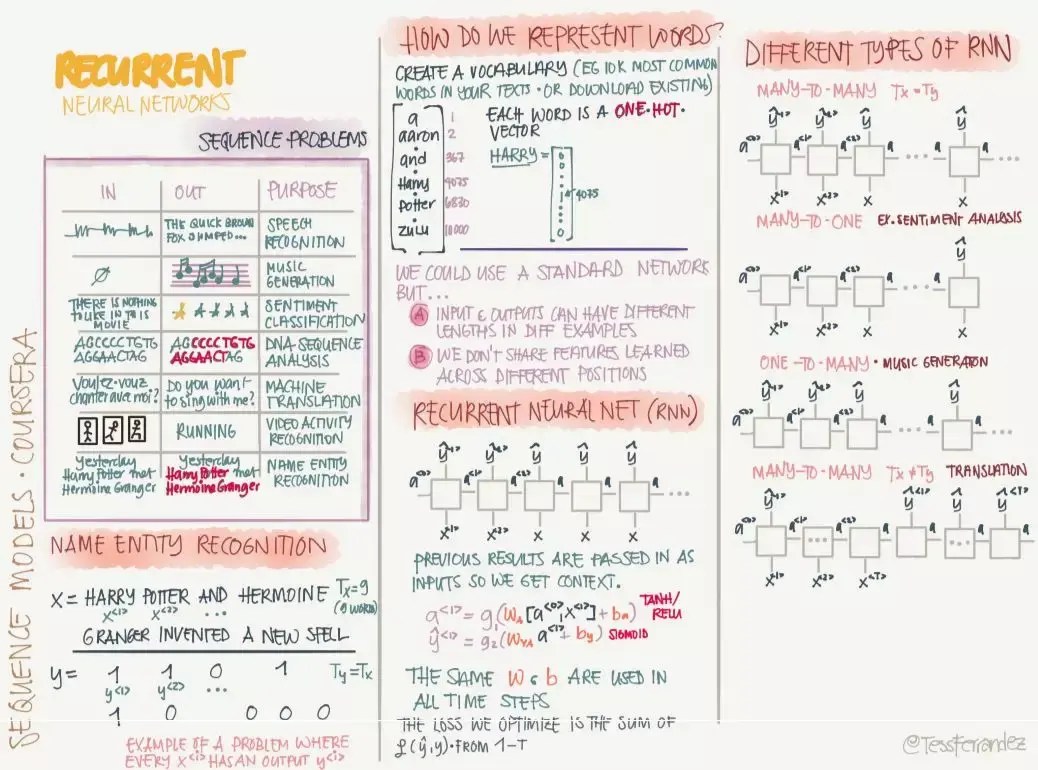 RECURRENT
NEURAL NETWORKS
SEQUENCE PROBLEMS
IN OUT PURPOSE
THE QUICK BROWN
FOX JUMPED...
SPEECH
RECOGNITION
MUSIC
GENERATION
THERE IS NOTHING
TO LIKE IN THIS
MOVIE
SENTIMENT
CLASSIFICATION
AGCCCCTGTG
AGGAACTAG
AGCCCCTGTG
AGGAACTAG
DNA-SEQUENCE
ANALYSIS
Voulez-vouz
chanter avec moi?
Do you want
to sing with me?
MACHINE
TRANSLATION
RUNNING
VIDEO ACTIVITY
RECOGNITION
Yesterday
Harry Potter met
Hermoine Granger
Yesterday
Harry Potter met
Hermoine Granger
NAME ENTITY
RECOGNITION
SEQUENCE MODELS · COURSERA
NAME ENTITY RECOGNITION
X = HARRY POTTER AND HERMOINE Tx=9
x<1> x<2> ... (9 WORDS)
GRANGER INVENTED A NEW SPELL
y = 1 1 0 1 Ty=Tx
y<1> y<2> ...
1 0 0 0 0
EXAMPLE OF A PROBLEM WHERE
EVERY X<i> HAS AN OUTPUT y<i>
HOW DO WE REPRESENT WORDS?
CREATE A VOCABULARY (EG 10K MOST COMMON
WORDS IN YOUR TEXTS · OR DOWNLOAD EXISTING)
a 1
aaron 2
and 367
Harry 4075
Potter 6830
zulu 10000
EACH WORD IS A ONE·HOT·
VECTOR
HARRY =
0
0
1
0
4075
WE COULD USE A STANDARD NETWORK
BUT...
A INPUT & OUTPUTS CAN HAVE DIFFERENT
LENGTHS IN DIFF EXAMPLES
B WE DON'T SHARE FEATURES LEARNED
ACROSS DIFFERENT POSITIONS
RECURRENT NEURAL NET (RNN)
ŷ<1> ŷ<2> ŷ ŷ ŷ
a<0> a<1> a<2> a a a ...
x<1> x<2> x x x
PREVIOUS RESULTS ARE PASSED IN AS
INPUTS SO WE GET CONTEXT.
a<1> = g1(WA [a<0>, x<1>] + ba) TANH/
RELU
ŷ<1> = g2(WYA a<1> + by) SIGMOID
THE SAME W & b ARE USED IN
ALL TIME STEPS
THE LOSS WE OPTIMIZE IS THE SUM OF
ℒ(ŷ,y) · FROM 1-T
DIFFERENT TYPES OF RNN
MANY-TO-MANY Tx = Ty
ŷ<1> ŷ<2> ŷ ŷ
a<0> a<1> a<2> a ... a ...
x<1> x<2> x x
MANY-TO-ONE EX. SENTIMENT ANALYSIS
ŷ
a<0> a<1> a<2> a ... a
x<1> x<2> x x
ONE-TO-MANY · MUSIC GENERATION
ŷ<1> ŷ<2> ŷ ŷ
a<0> a<1> a<2> a ... a ...
x
MANY-TO-MANY Tx ≠ Ty TRANSLATION
ŷ<1> ŷ<1> ŷ ŷ<T>
a<0> a<1> ... a<2> a a ... a
x<1> x<2> x<T>
@TessFerrandez